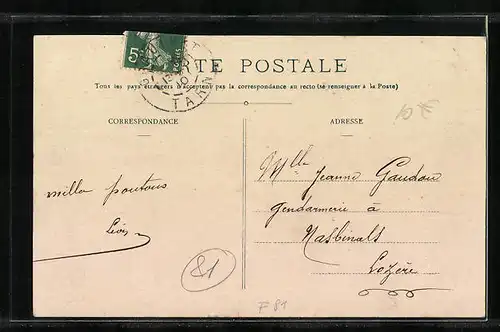 CARTE POSTALE
Tous les pays étrangers n'acceptent pas la correspondance au recto (se renseigner à la Poste)
CORRESPONDANCE
ADRESSE
milla poutous
Mlle Jeanne Gaudou
Gendarmerie à
Nasbinals
Lozère
5
TARN
81
F 81